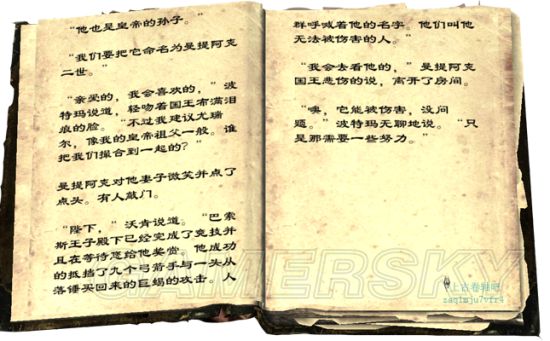 “他也是皇帝的孙子。”
“我们要把它命名为曼提阿克
二世。”
“亲爱的，我会喜欢的，”波
特玛说道，轻吻着国王布满泪
痕的脸。“不过我建议尤瑞
尔，像我的皇帝祖父一般。谁
把我们撮合到一起的？”
曼提阿克对他妻子微笑并点了
点头。有人敲门。
“陛下，”沃肯说道。“巴索
斯王子殿下已经完成了竞技并
且在等待您给他奖赏。他成功
的抵挡了九个弓箭手与一头从
落锤买回来的巨蝎的攻击。人
群呼喊着他的名字。他们叫他
无法被伤害的人。”
“我会去看他的，”曼提阿克
国王悲伤的说，离开了房间。
“噢，它能被伤害，没问
题。”波特玛无聊地说。“只
是那需要一些努力。”
GAMERSKY
上古卷轴吧
zaqimju7vfr4